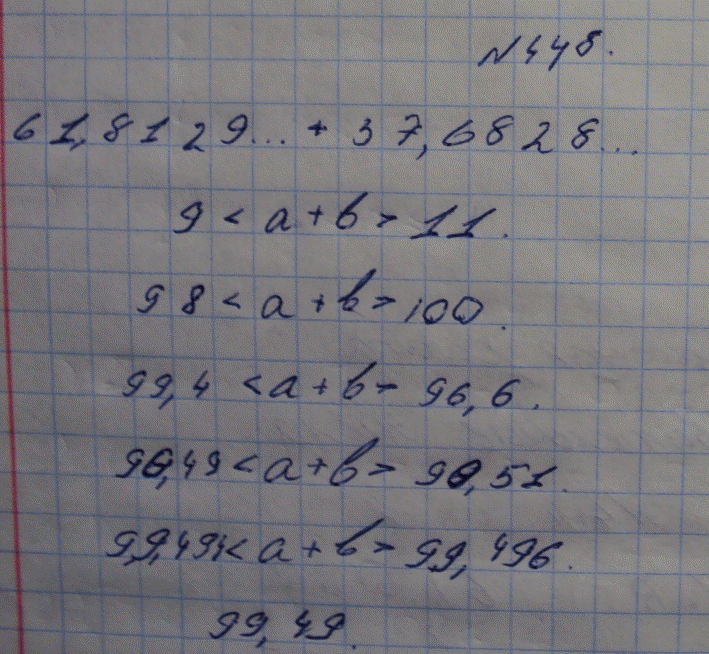 N448.
61,8129... + 37,6828...
9 < a + b > 11.
98 < a + b > 100.
99,4 < a + b > 96,6.
90,49 < a + b > 90,51.
99,494 < a + b > 99,496.
99,49.